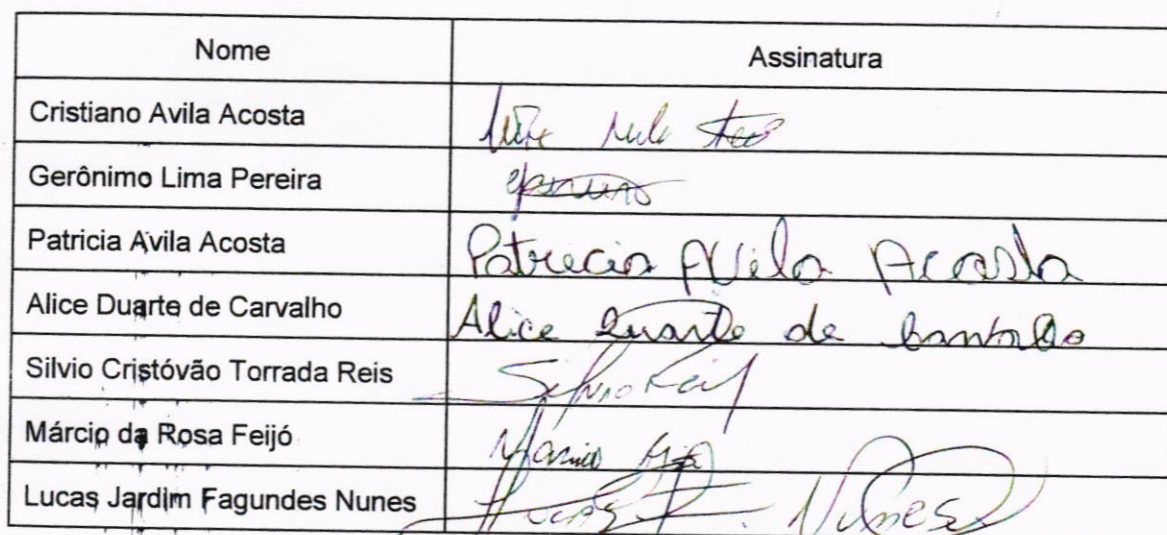 Nome Assinatura
Cristiano Avila Acosta
Gerônimo Lima Pereira
Patricia Avila Acosta Patricia Avila Acosta
Alice Duarte de Carvalho Alice Duarte de Carvalho
Silvio Cristóvão Torrada Reis Silvio Reis
Márcio da Rosa Feijó
Lucas Jardim Fagundes Nunes Nunes